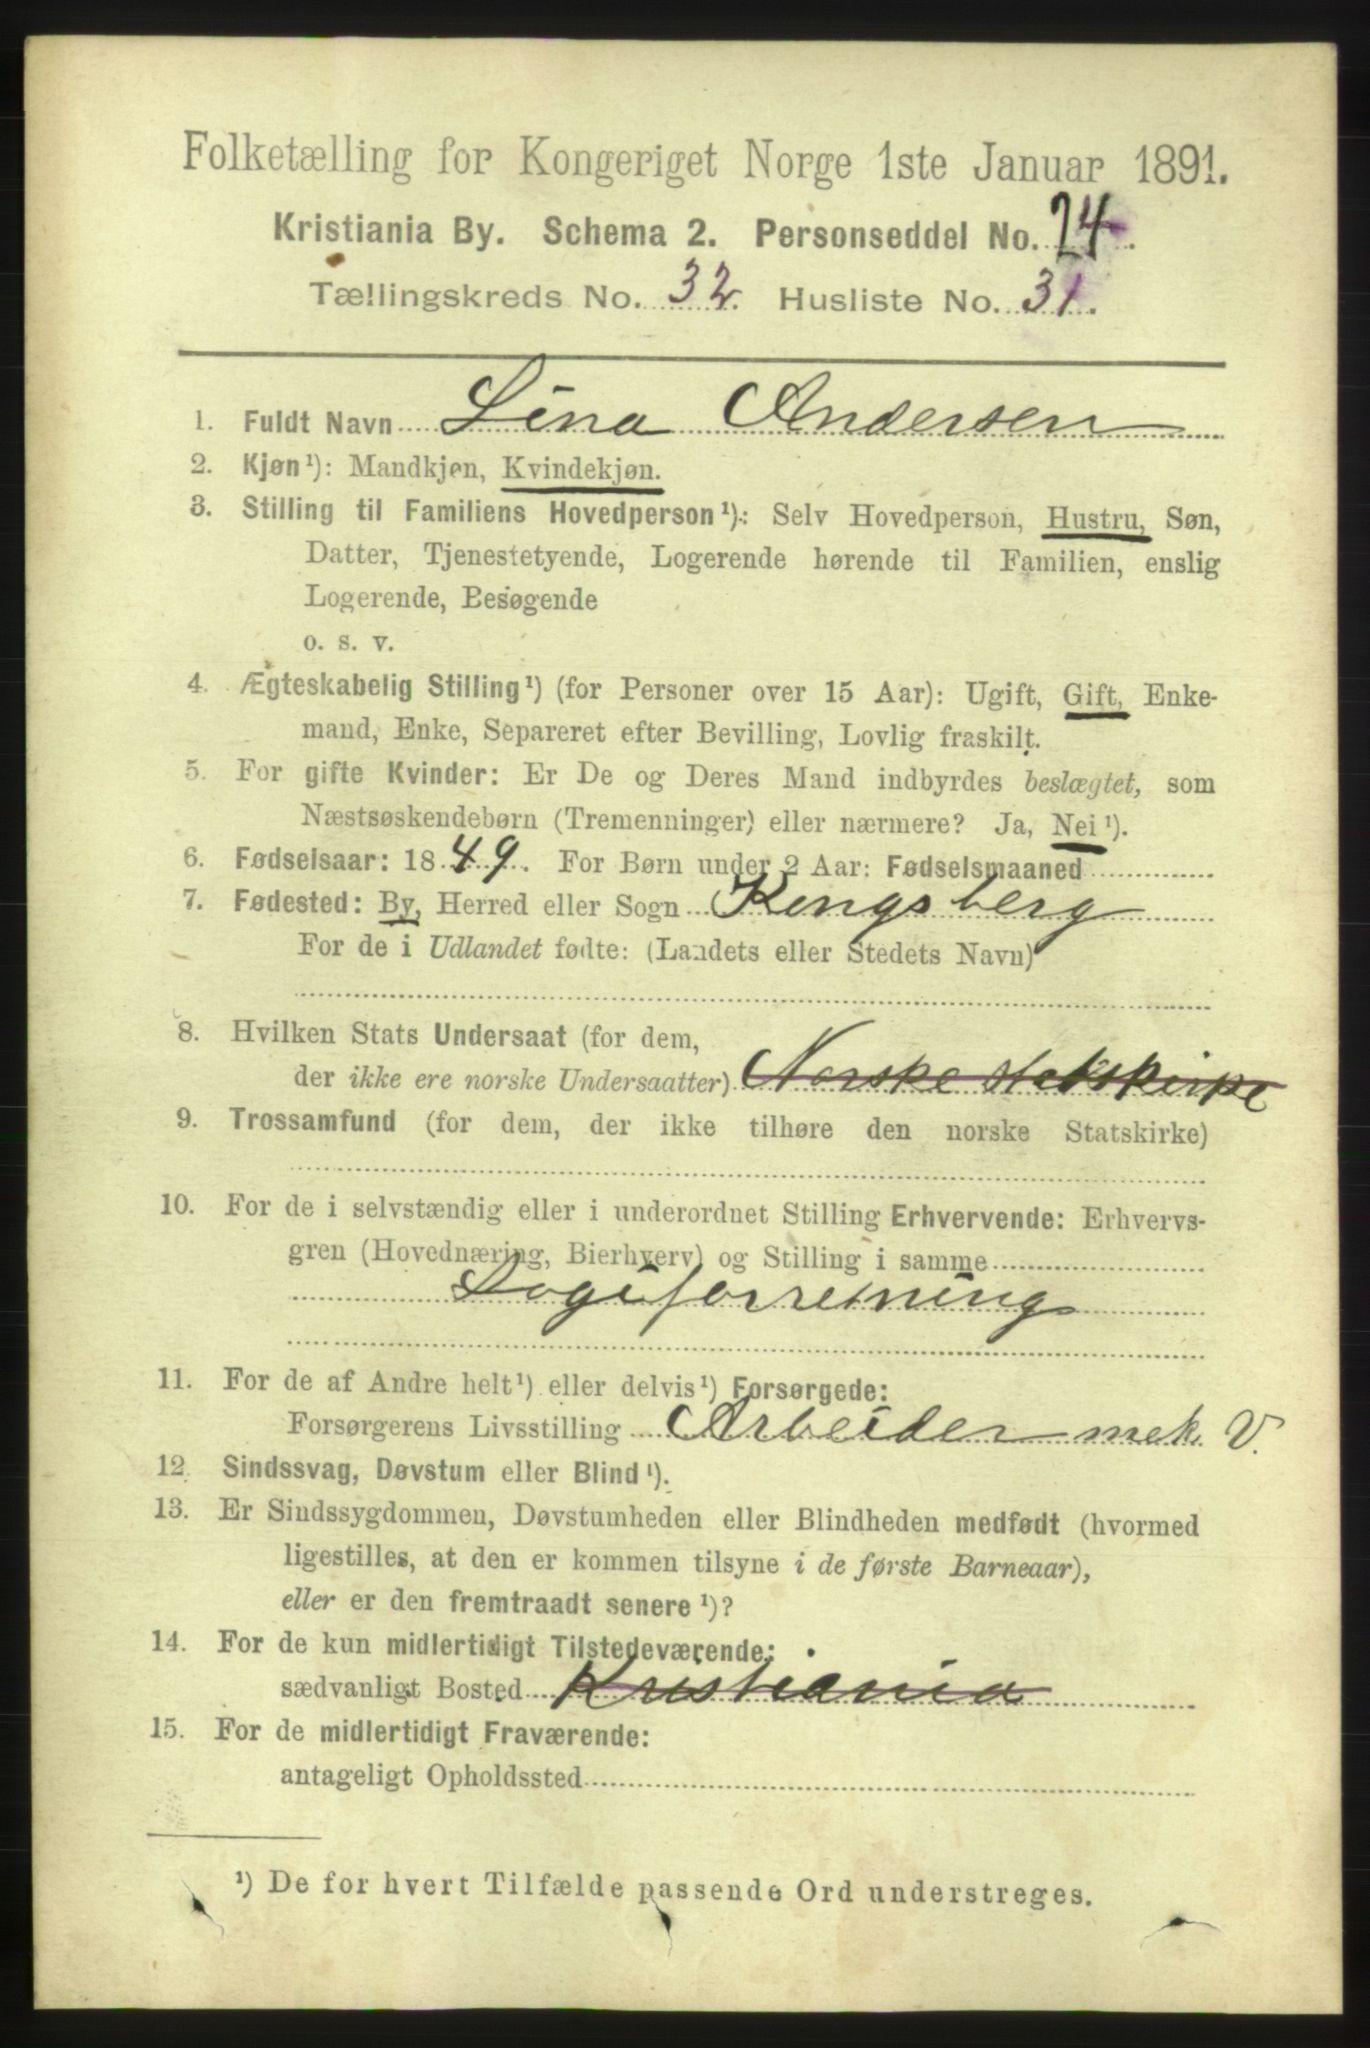 Folketælling for Kongeriget Norge 1ste Januar 1891.
Kristiania By. Schema 2. Personseddel No. 24.
Tællingskreds No. 32. Husliste No. 31.
1. Fuldt Navn Lina Andersen
2. Kjøn¹): Mandkjøn, Kvindekjøn.
3. Stilling til Familiens Hovedperson¹): Selv Hovedperson, Hustru, Søn,
Datter, Tjenestetyende, Logerende hørende til Familien, enslig
Logerende, Besøgende
o. s. v.
4. Ægteskabelig Stilling¹) (for Personer over 15 Aar): Ugift, Gift, Enke-
mand, Enke, Separeret efter Bevilling, Lovlig fraskilt.
5. For gifte Kvinder: Er De og Deres Mand indbyrdes beslægtet, som
Næstsøskendebørn (Tremenninger) eller nærmere? Ja, Nei¹).
6. Fødselsaar: 1849. For Børn under 2 Aar: Fødselsmaaned
7. Fødested: By, Herred eller Sogn Kongsberg
For de i Udlandet fødte: (Landets eller Stedets Navn)
8. Hvilken Stats Undersaat (for dem,
der ikke ere norske Undersaatter) Norske statskirke
9. Trossamfund (for dem, der ikke tilhøre den norske Statskirke)
10. For de i selvstændig eller i underordnet Stilling Erhvervende: Erhvervs-
gren (Hovednæring, Bierhverv) og Stilling i samme
Logiforretning
11. For de af Andre helt¹) eller delvis¹) Forsørgede:
Forsørgerens Livsstilling Arbeider mek. V.
12. Sindssvag, Døvstum eller Blind¹).
13. Er Sindssygdommen, Døvstumheden eller Blindheden medfødt (hvormed
ligestilles, at den er kommen tilsyne i de første Barneaar),
eller er den fremtraadt senere¹)?
14. For de kun midlertidigt Tilstedeværende:
sædvanligt Bosted Kristiania
15. For de midlertidigt Fraværende:
antageligt Opholdssted
¹) De for hvert Tilfælde passende Ord understreges.